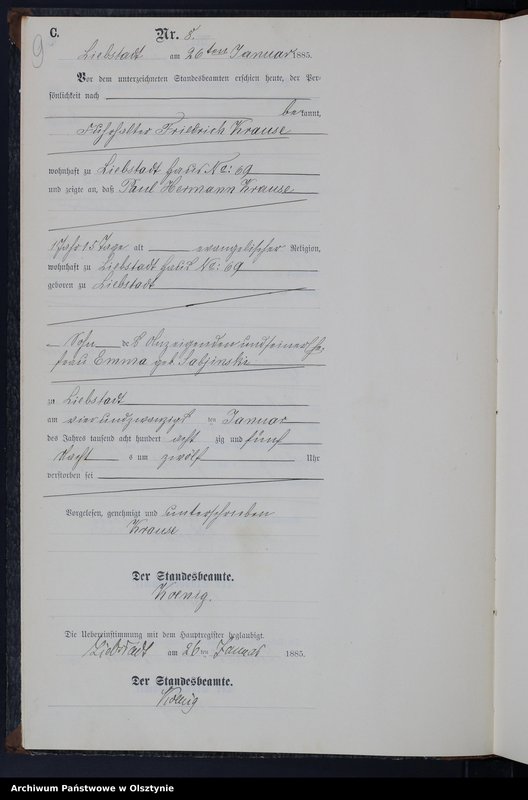 9
C.
Nr. 8.
Liebstadt am 26ten Januar 1885.
Vor dem unterzeichneten Standesbeamten erschien heute, der Per-
sönlichkeit nach
bekannt,
Fuhrhalter Friedrich Krause
wohnhaft zu Liebstadt Haus No: 69
und zeigte an, daß Paul Hermann Krause
1 Jahr 15 Tage alt evangelischer Religion,
wohnhaft zu Liebstadt Haus No: 69
geboren zu Liebstadt
Sohn des Anzeigenden und seiner Ehe-
frau Emma geb.
zu Liebstadt
am vierundzwanzigsten Januar
des Jahres tausend acht hundert acht zig und fünf
Nachts um zwölf Uhr
verstorben sei
Vorgelesen, genehmigt und unterschrieben
Krause
Der Standesbeamte.
Koenig.
Die Uebereinstimmung mit dem Hauptregister beglaubigt.
Liebstadt am 26ten Januar 1885.
Der Standesbeamte.
Koenig
Archiwum Państwowe w Olsztynie